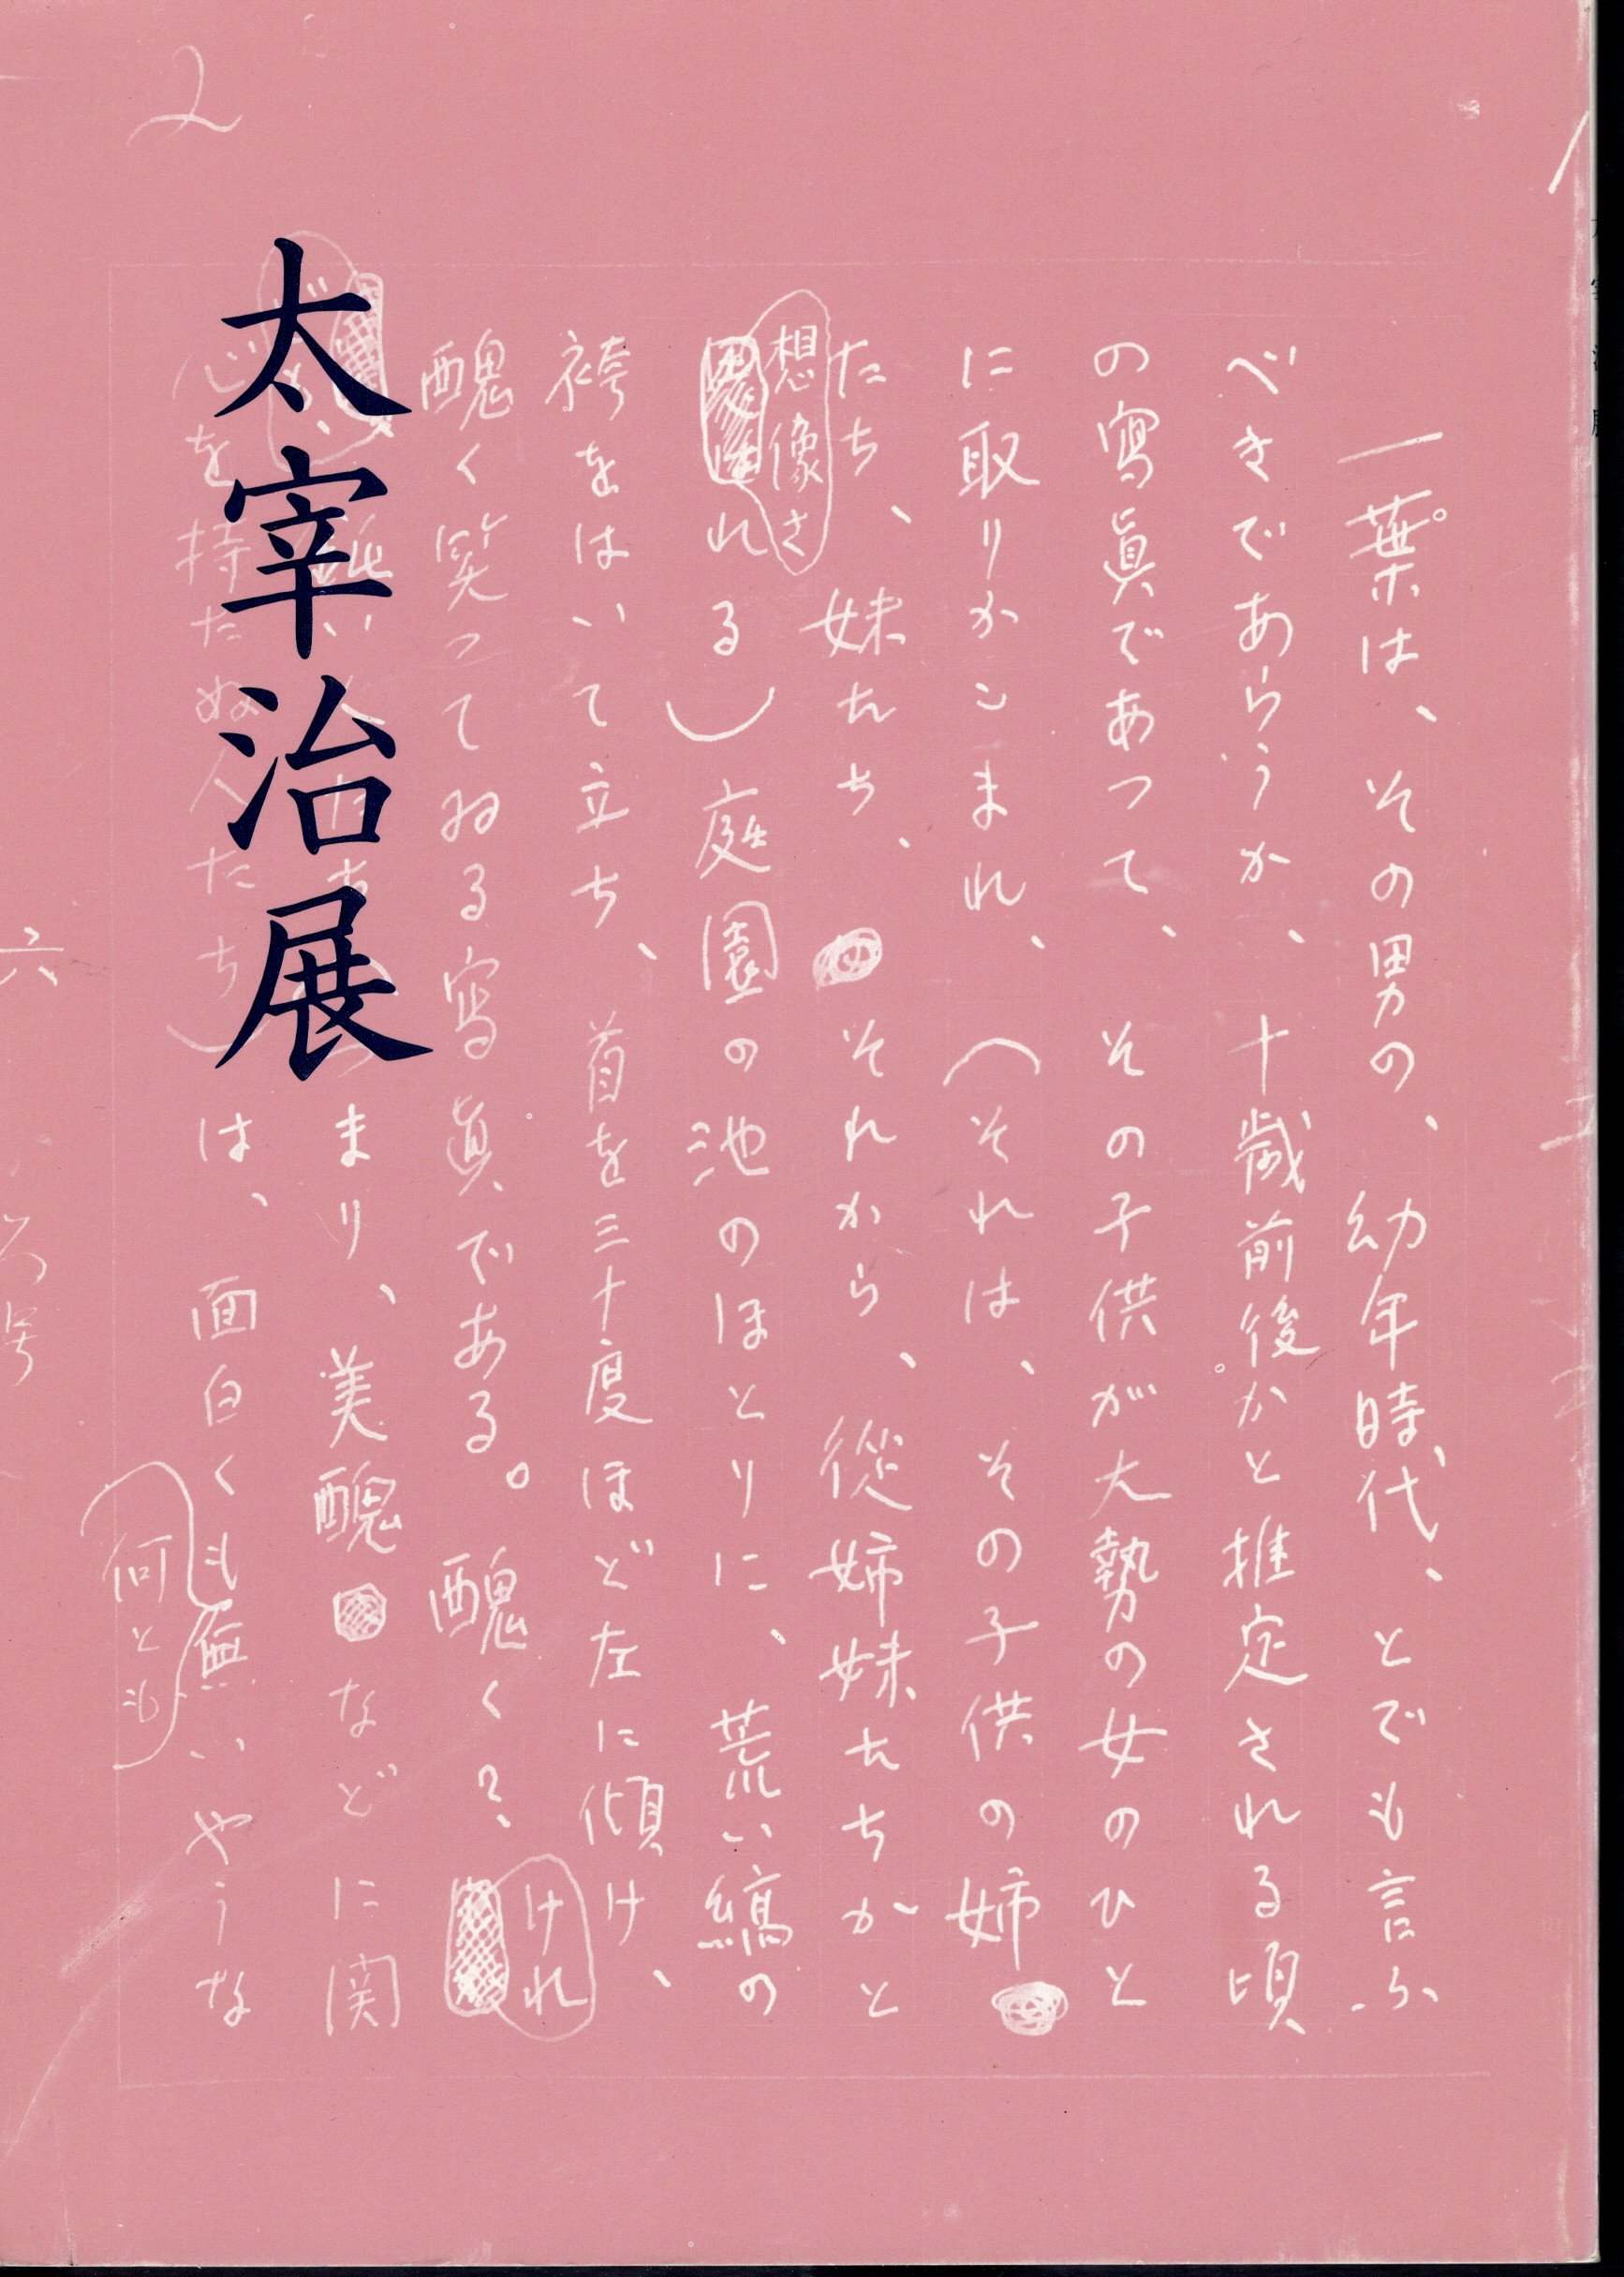 太宰治展
一葉は、その男の、幼年時代、とでも言ふ
べきであらうか、十歳前後かと推定される頃
の寫眞であつて、その子供が大勢の女のひと
に取りかこまれ、(それは、その子供の姉
たち、妹たち、それから、從姉妹たちかと
想像さ
れる)庭園の池のほとりに、荒い縞の
袴をはいて立ち、首を三十度ほど左に傾け、
醜く笑つてゐる寫眞である。醜く?
けれ
まり、美醜などに関
心を持たぬ人たち)は、面白くも無いやうな
何とも
2
六
号